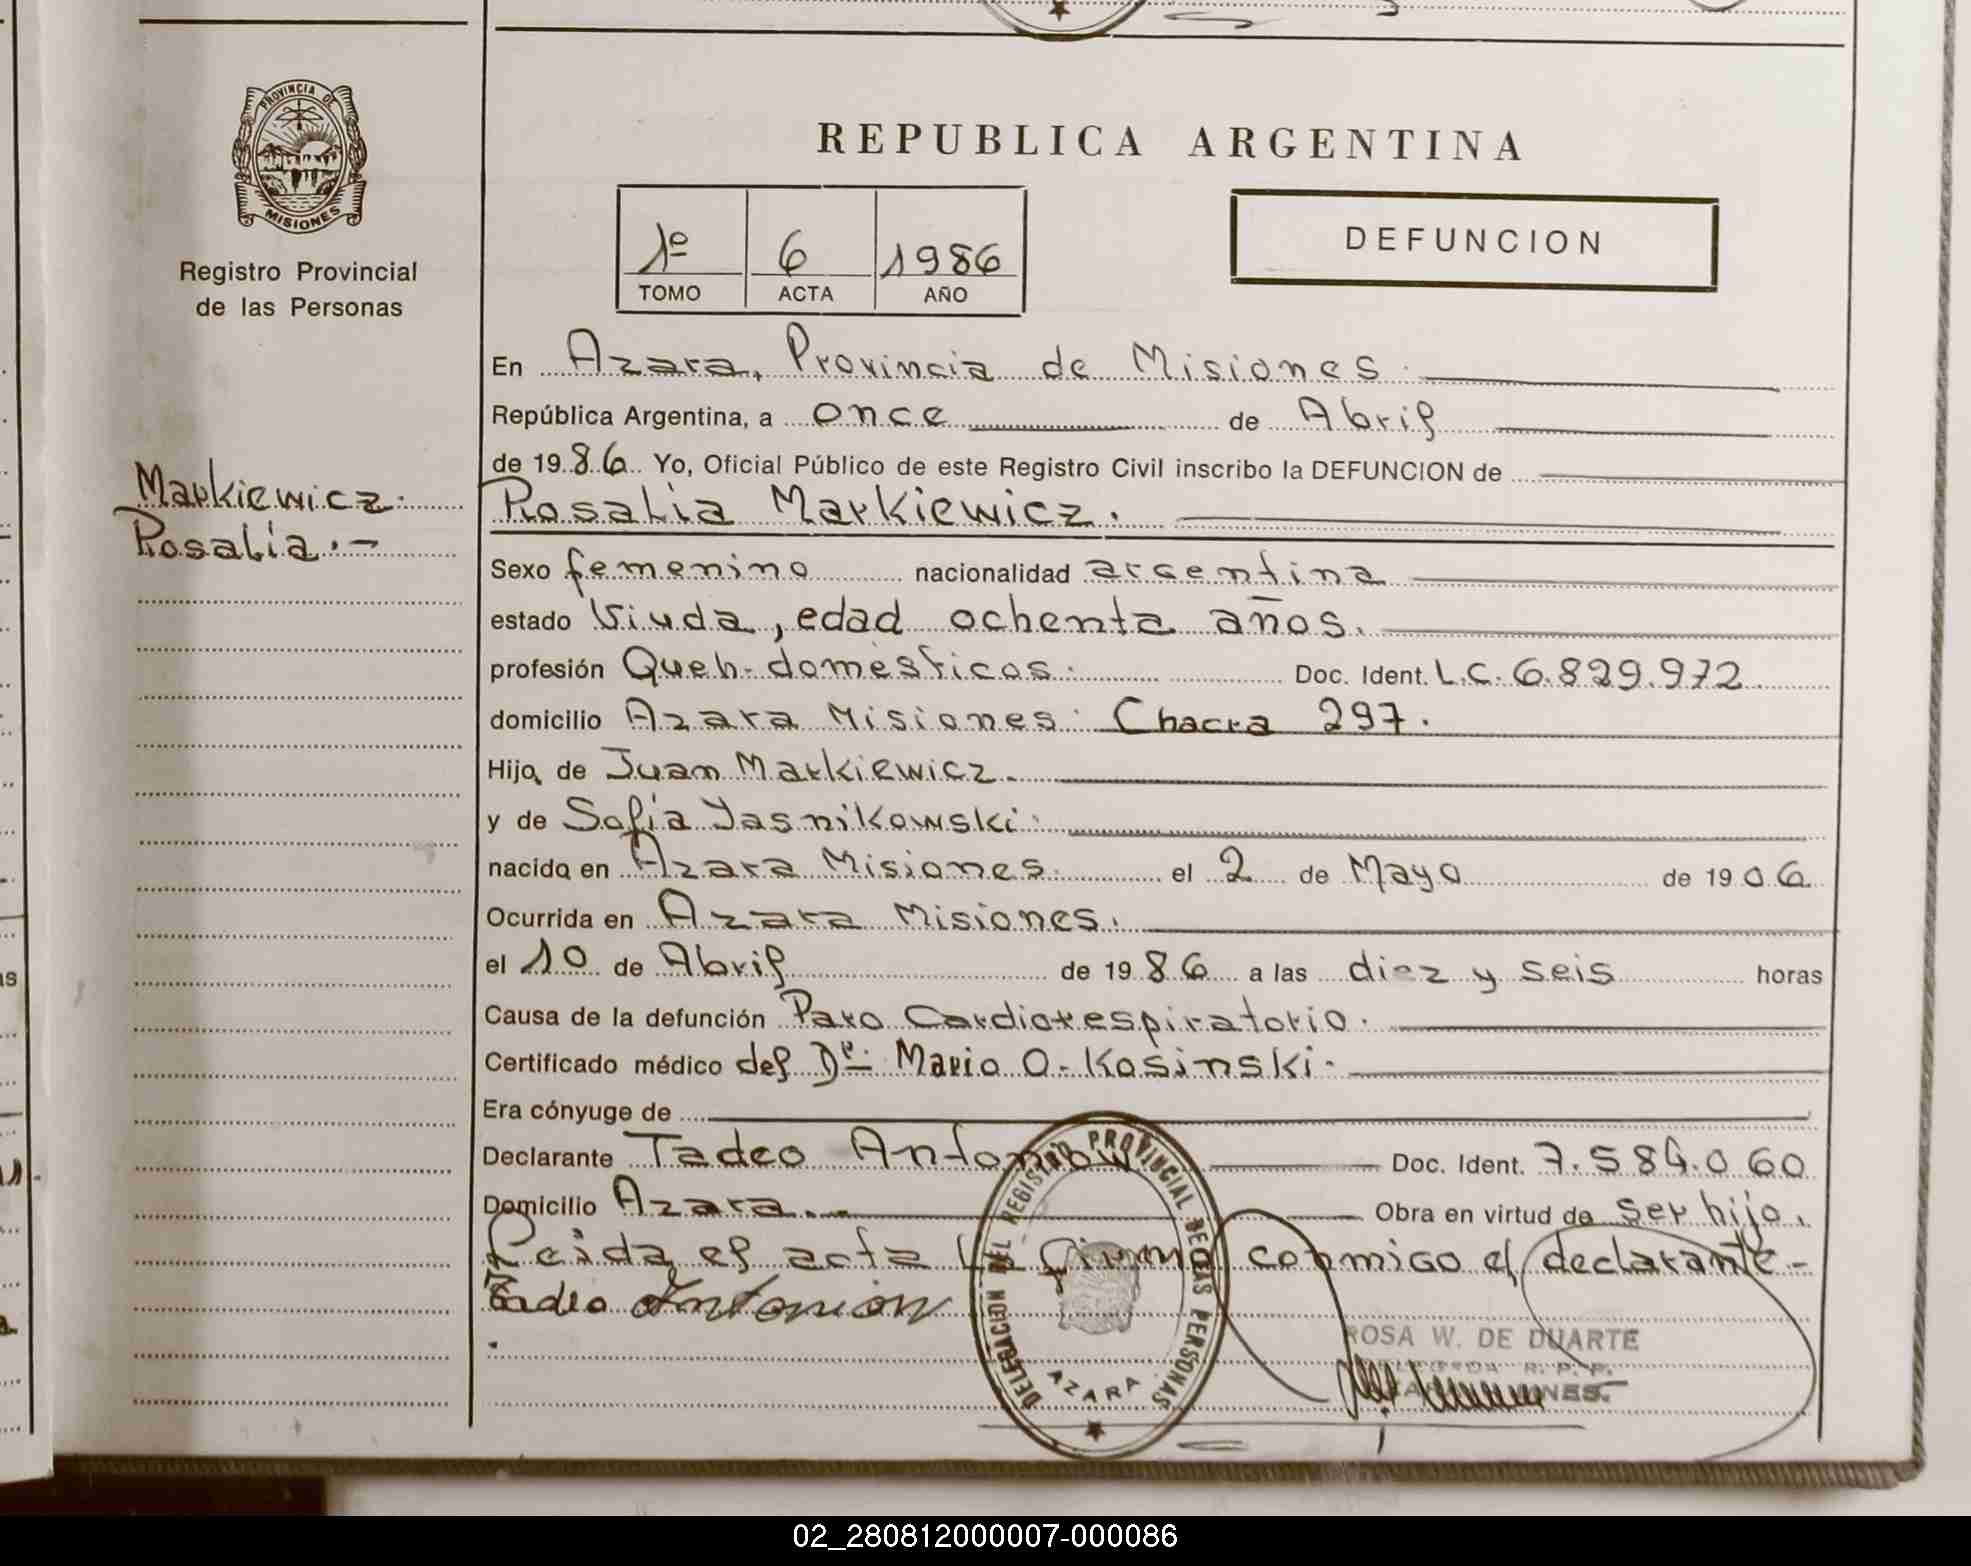 PROVINCIA DE
MISIONES
Registro Provincial
de las Personas
Markiewicz.
Rosalía.-
REPUBLICA ARGENTINA
1º 6 1986
TOMO ACTA AÑO
DEFUNCION
En Azara, Provincia de Misiones.
República Argentina, a once de Abril
de 1986 Yo, Oficial Público de este Registro Civil inscribo la DEFUNCION de
Rosalia Markiewicz.
Sexo femenino nacionalidad argentina
estado Viuda, edad ochenta años.
profesión Queh-domésticos. Doc. Ident. L.C. 6.829.972
domicilio Azara Misiones. Chacra 297.
Hija de Juan Markiewicz.
y de Sofia Yasnikowski.
nacida en Azara Misiones. el 2 de Mayo de 1906
Ocurrida en Azara Misiones.
el 10 de Abril de 1986 a las diez y seis horas
Causa de la defunción Paro Cardiorespiratorio.
Certificado médico del Dr. Mario O. Kosinski.
Era cónyuge de
Declarante Tadeo Antoniow Doc. Ident. 7.584.060
Domicilio Azara. Obra en virtud de ser hijo.
Leida el acta la firma conmigo el declarante-
Tadeo Antoniow
DELEGACION DEL REGISTRO PROVINCIAL DE LAS PERSONAS
AZARA
ROSA W. DE DUARTE
DELEGADA R. P. P.
02_280812000007-000086